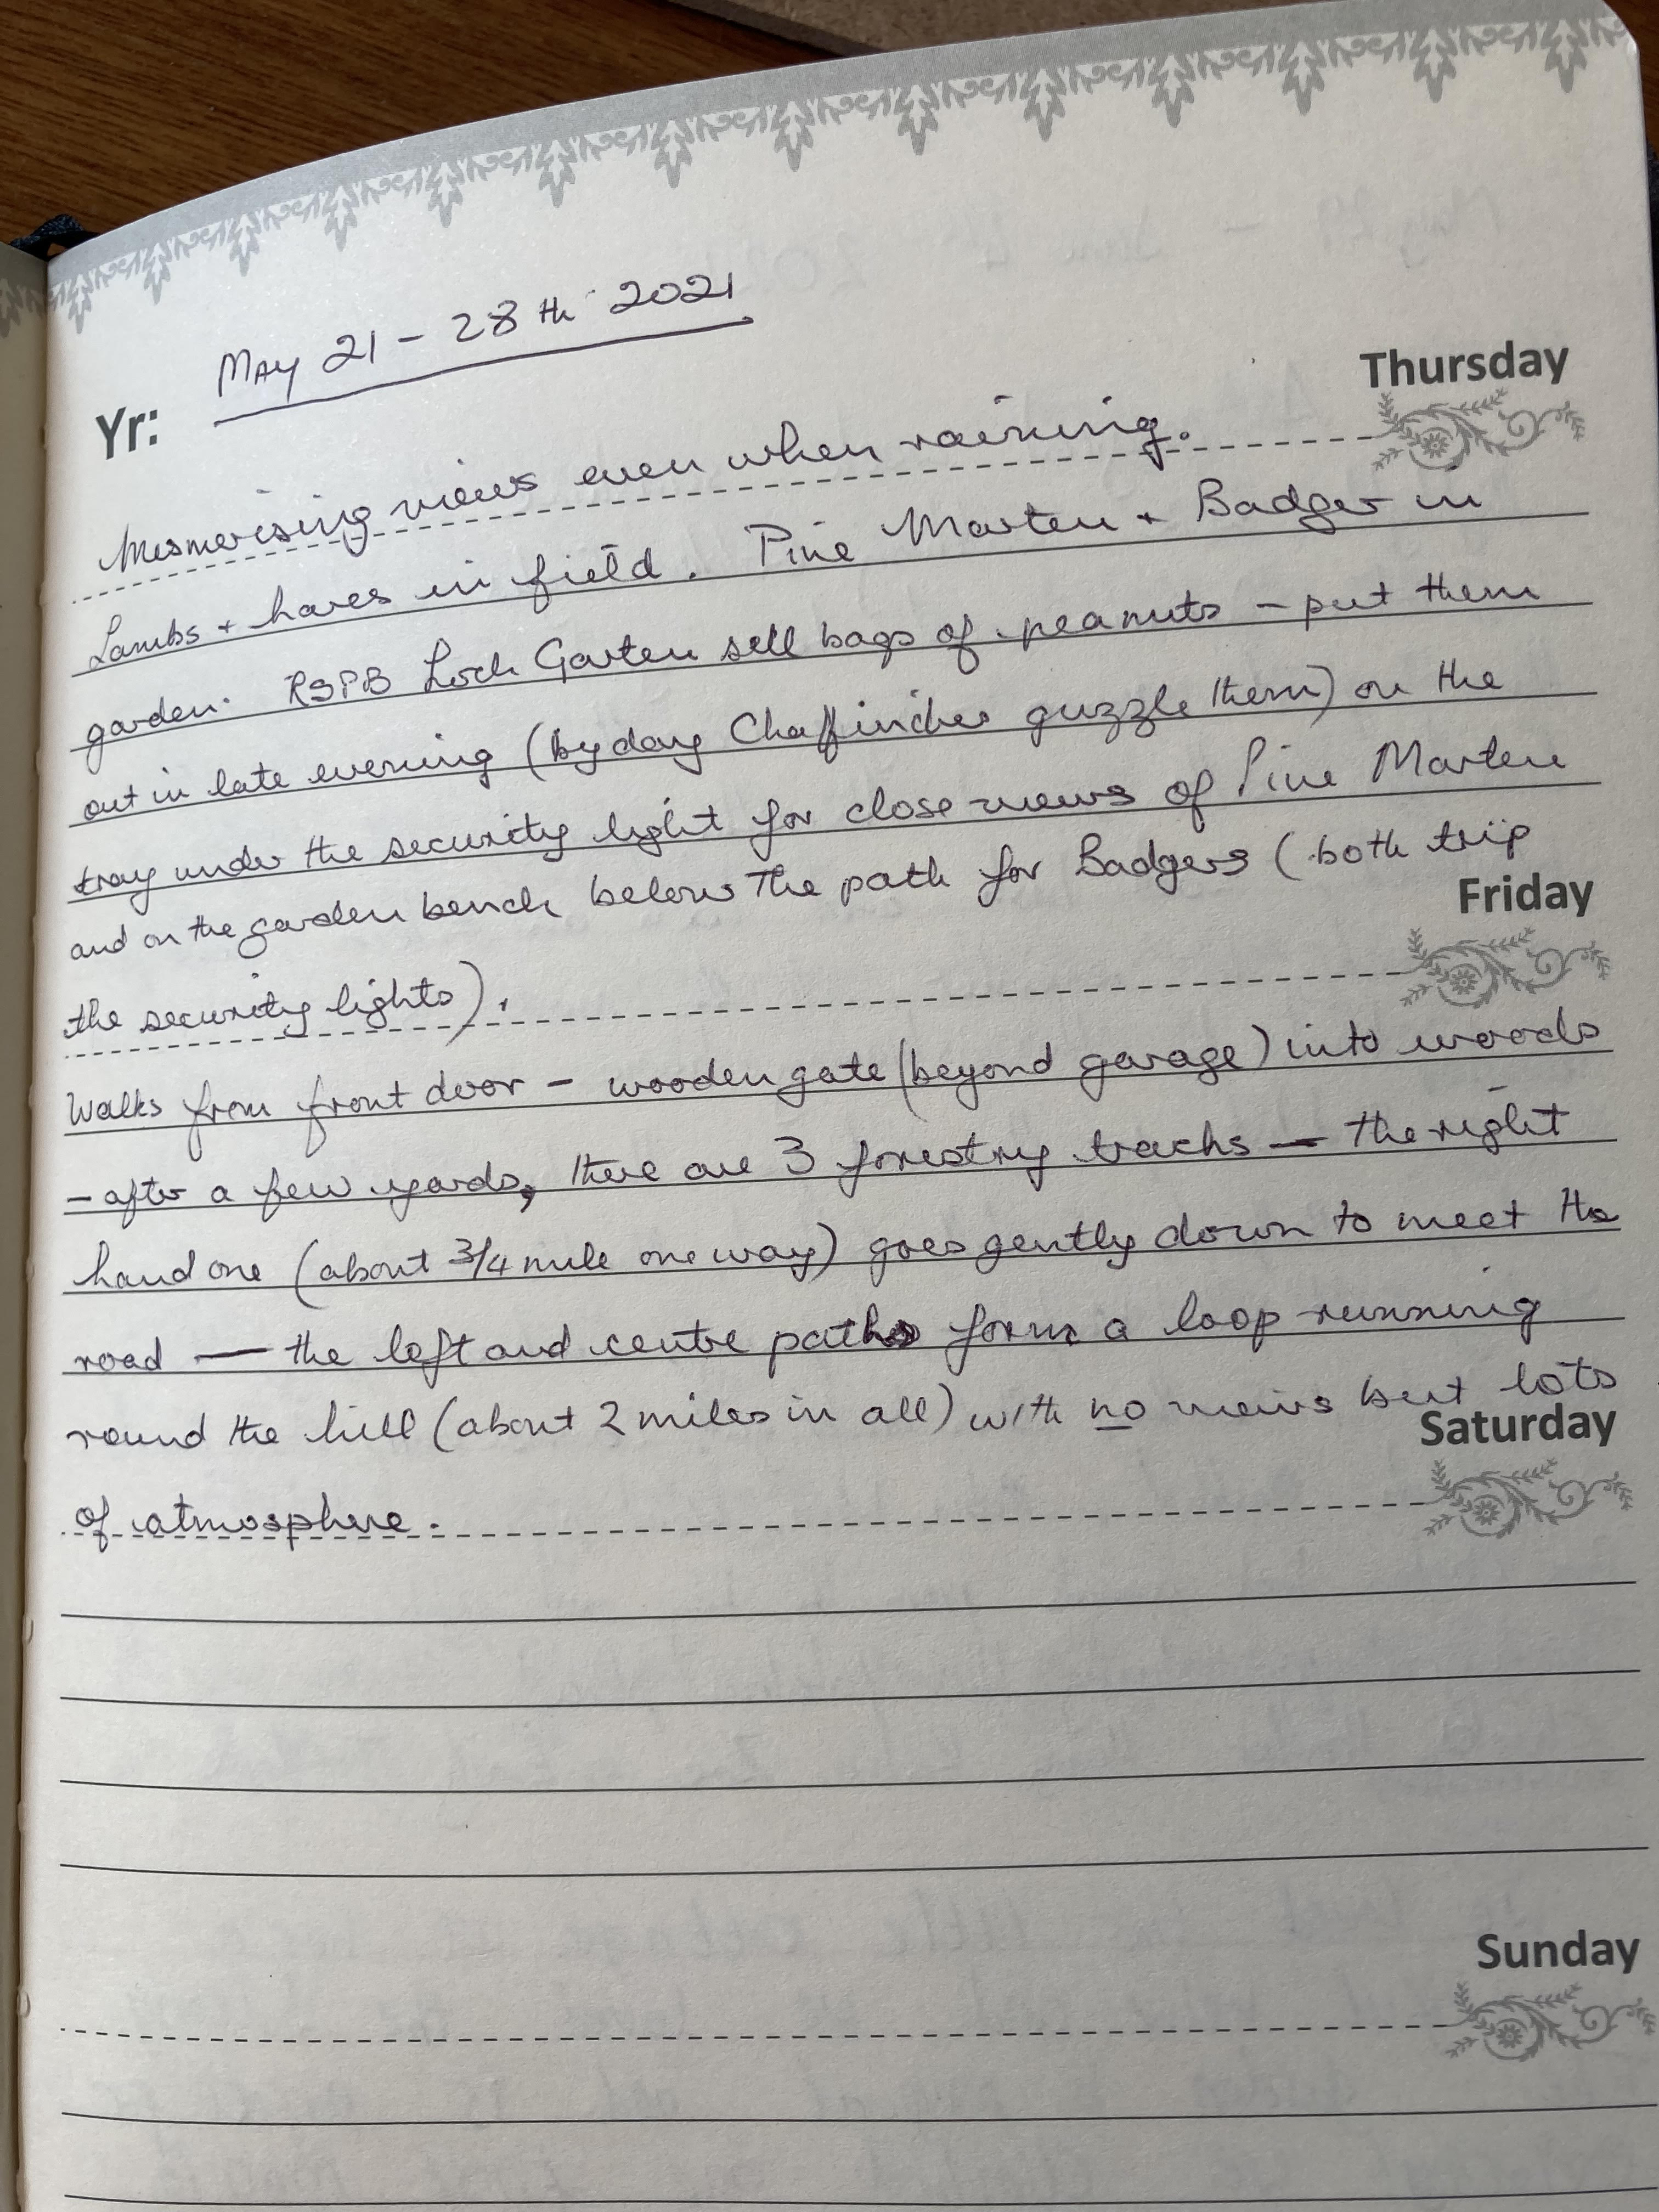 May 21 - 28th 2021
Yr:
Thursday
Mesmerising views even when raining.
Lambs + hares in field. Pine Marten + Badger in
garden. RSPB Loch Garten sell bags of peanuts - put them
out in late evening (by day Chaffinches guzzle them) on the
tray under the security light for close views of Pine Marten
and on the garden bench below the path for Badgers (both trip
Friday
the security lights).
Walks from front door - wooden gate (beyond garage) into woods
- after a few yards, there are 3 forestry tracks - the right
hand one (about 3/4 mile one way) goes gently down to meet the
road - the left and centre paths form a loop running
round the hill (about 2 miles in all) with no views but lots
Saturday
of atmosphere.
Sunday